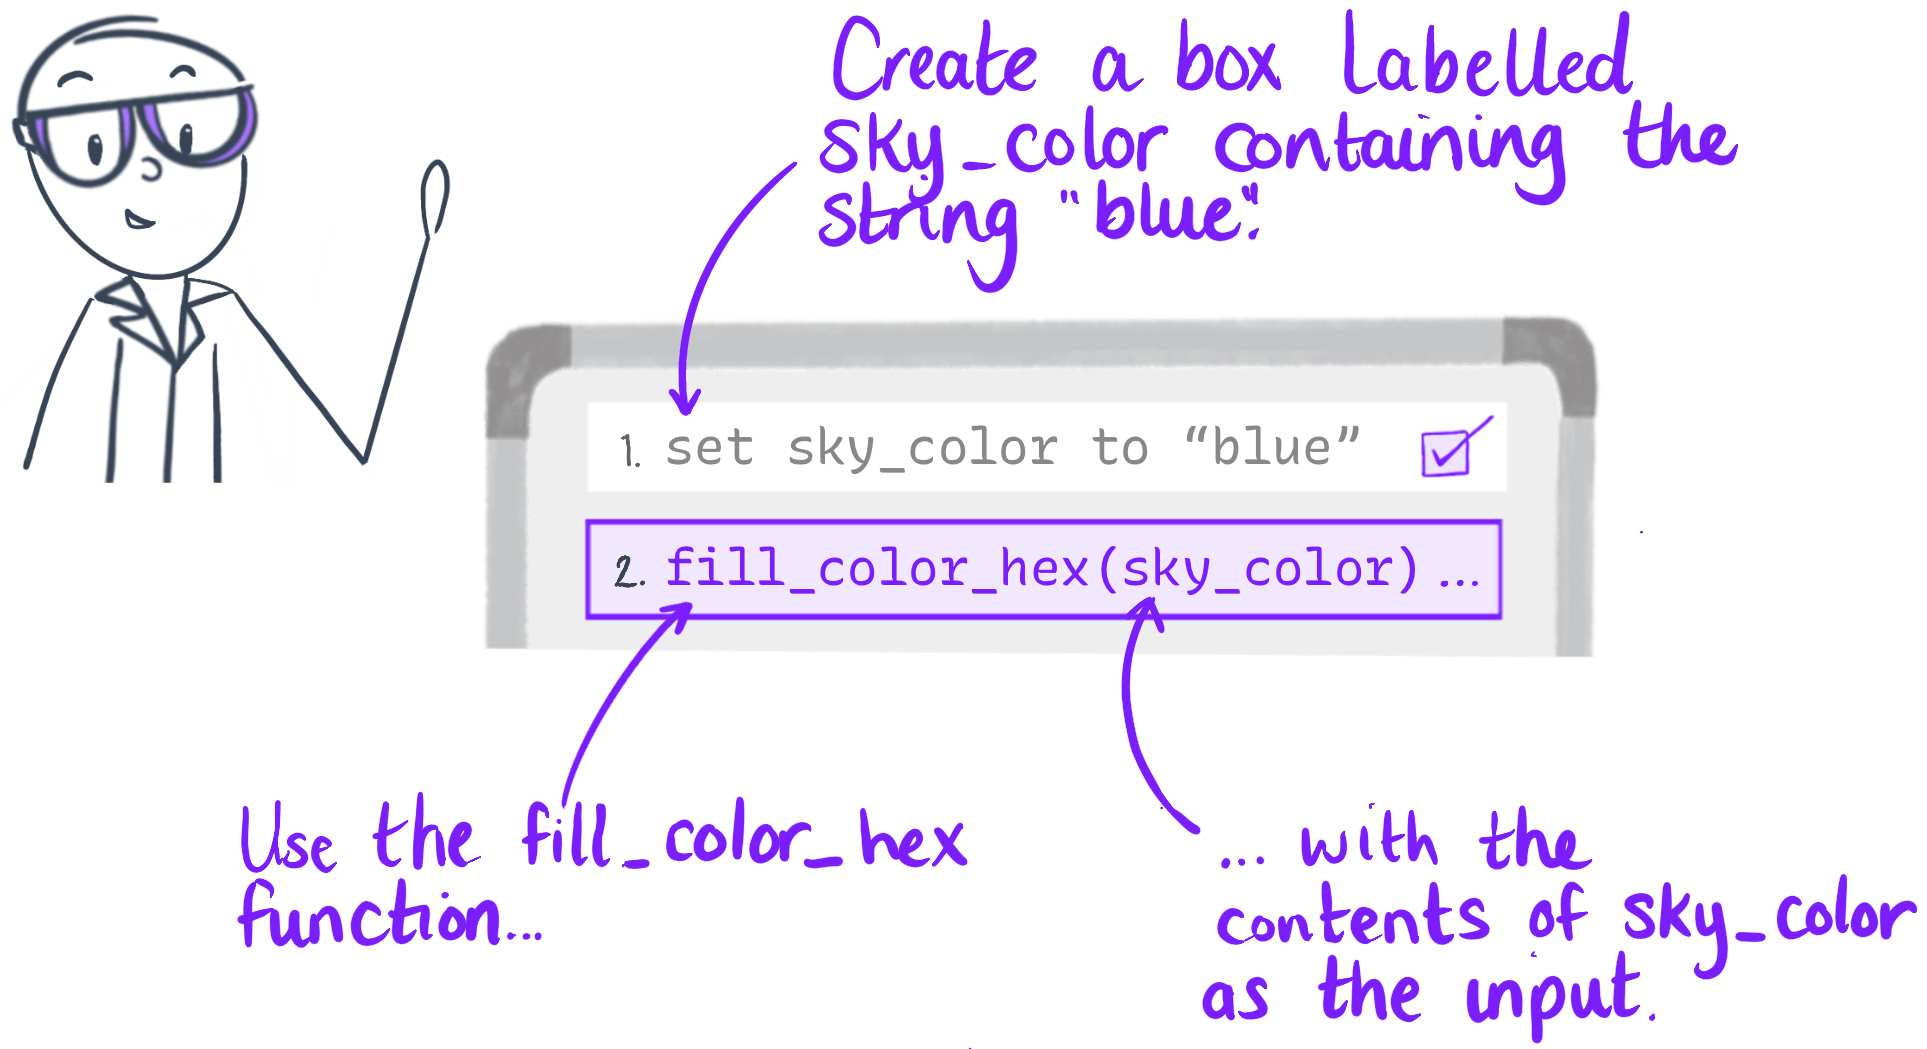 Create a box labelled
sky_color containing the
string "blue".
1. set sky_color to “blue”
2. fill_color_hex(sky_color) ...
Use the fill_color_hex
function...
... with the
contents of sky_color
as the input.